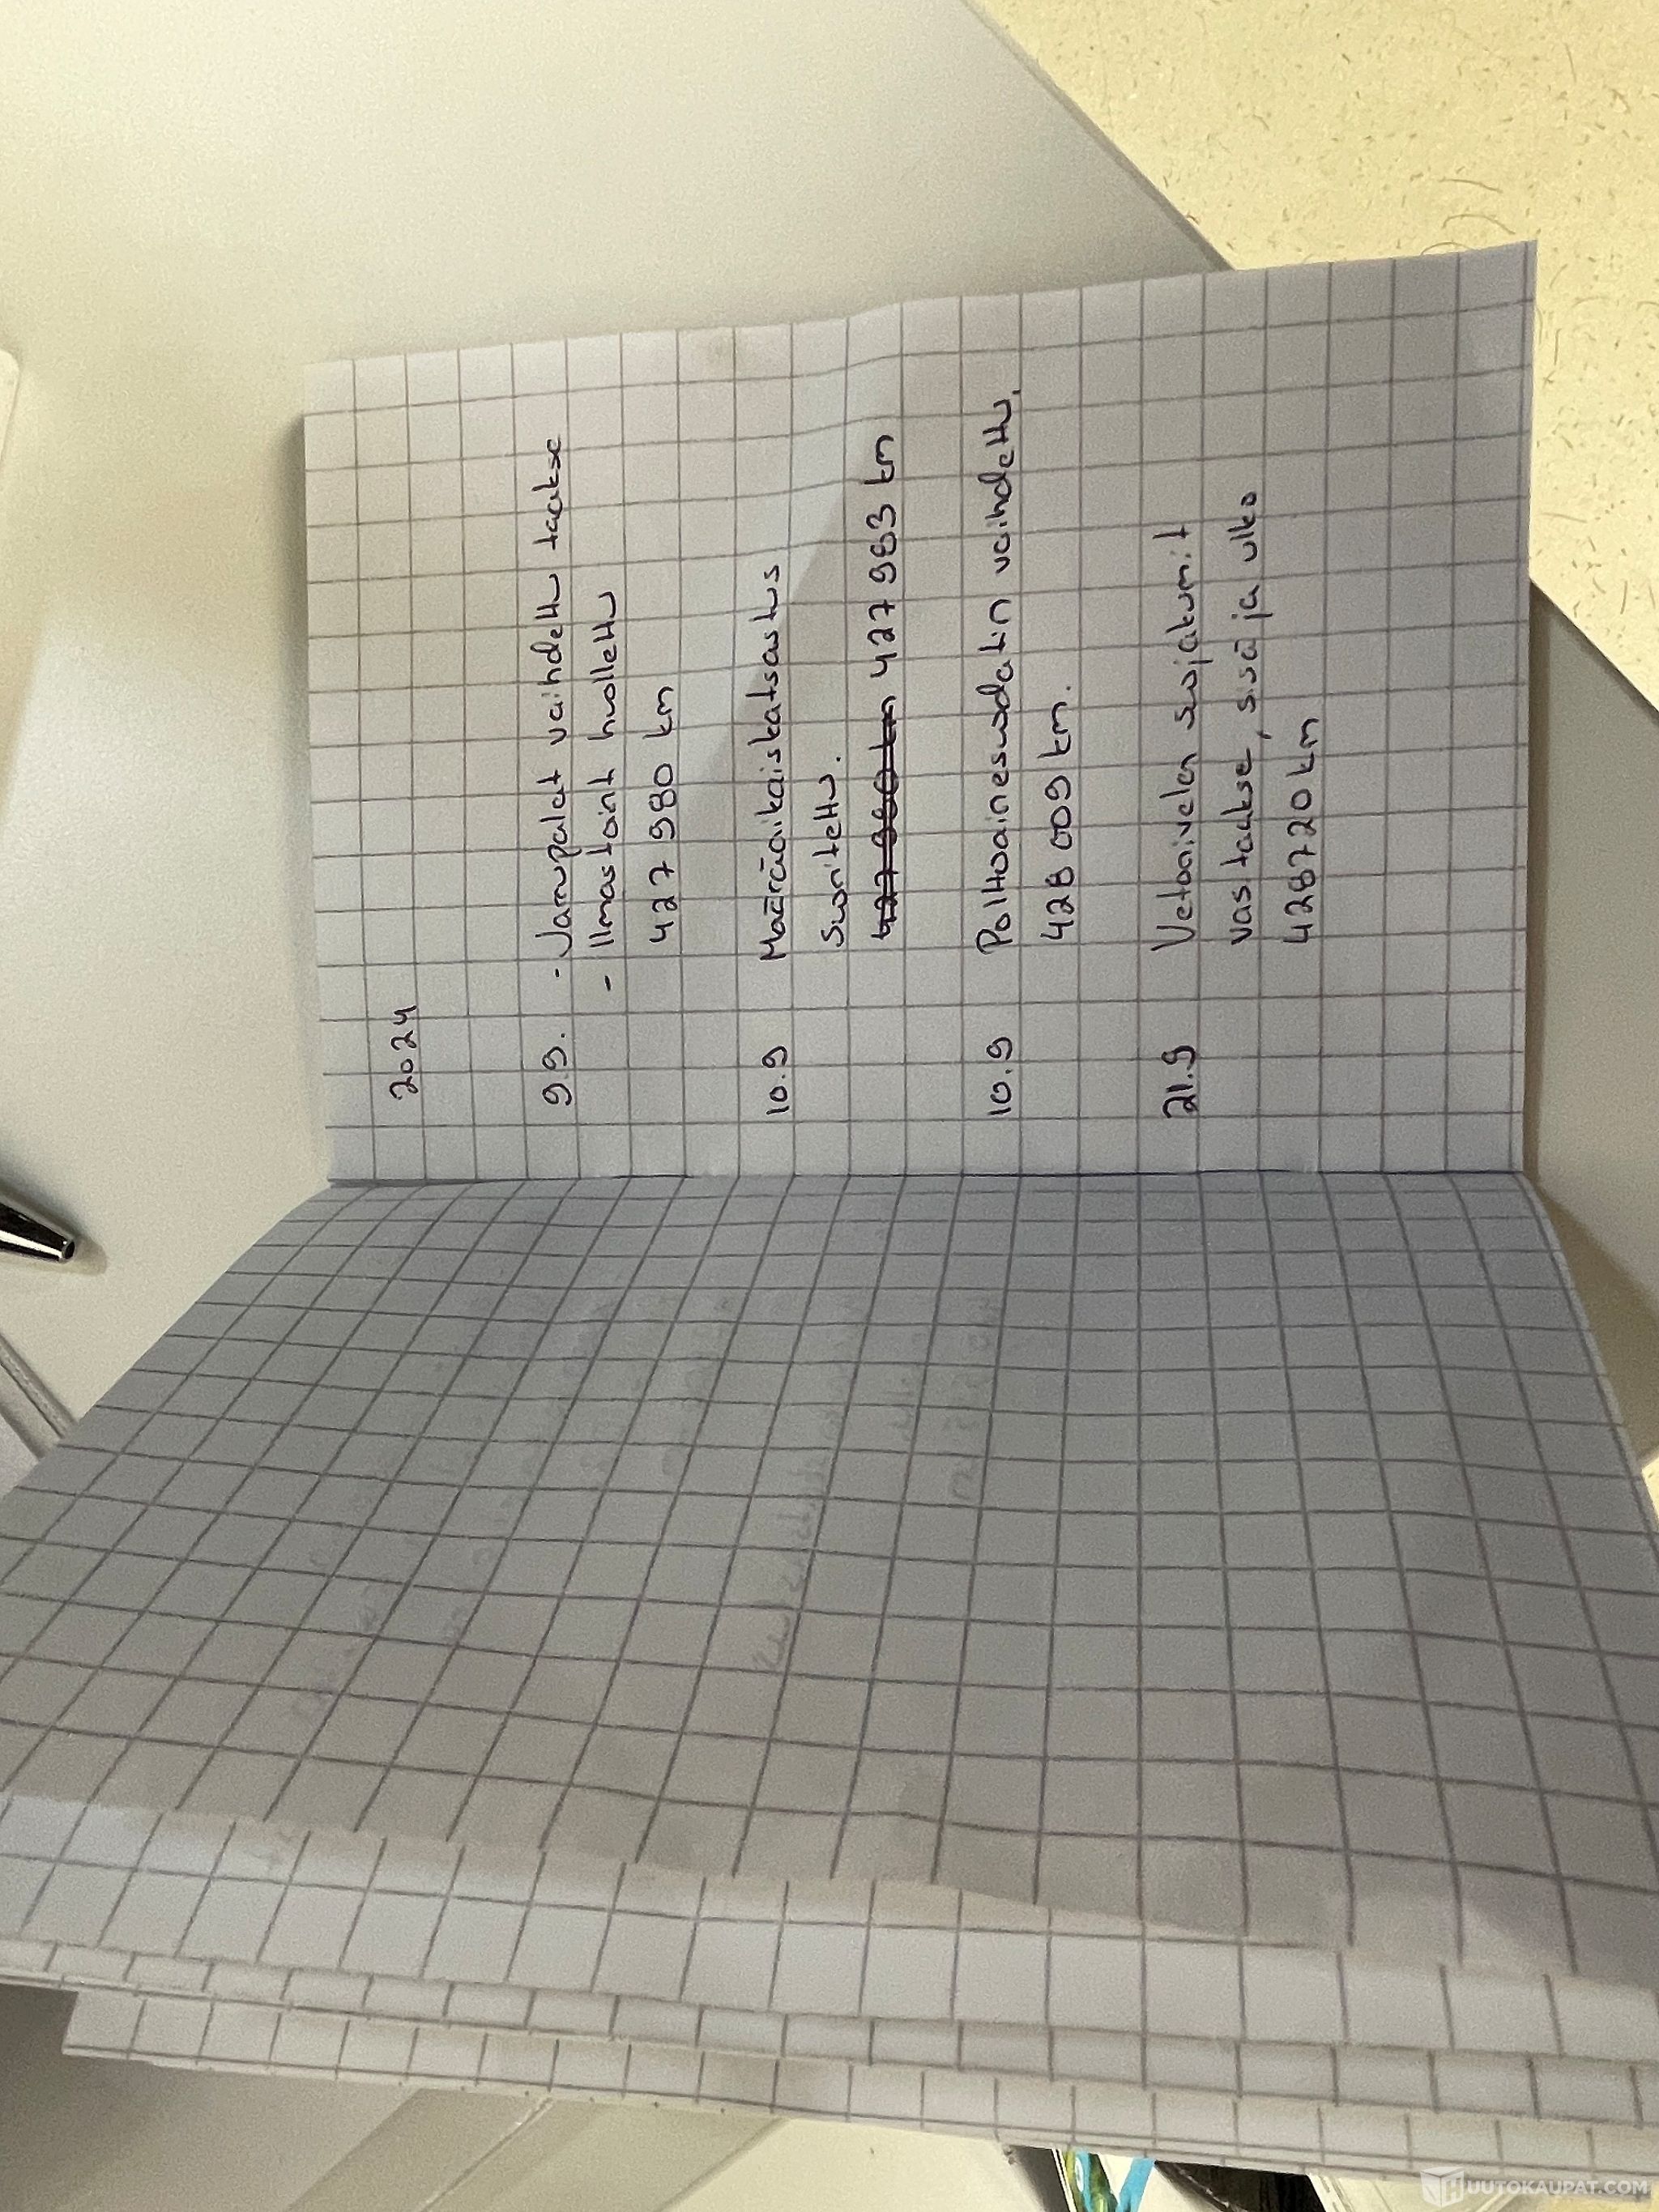 2024
9.9. - Jarrupalat vaihdettu taakse
- Ilmastoint huollettu
427 980 km
10.9 Määräaikaiskatsastus
Suoritettu.
427 980 km 427 983 km
10.9 Polttoainesuodatin vaihdettu.
428 009 km.
21.9 Vetonivelen suojakumit
vas taakse, sisä ja ulko
428720 km
UUTOKAUPAT.COM